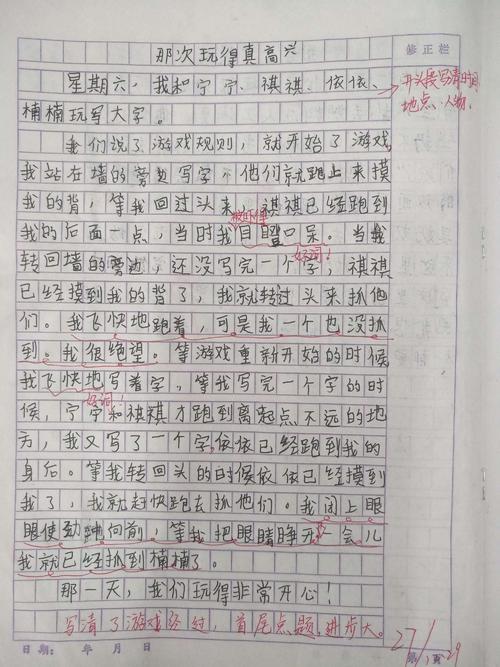 那次玩得真高兴
修正栏
星期六，我和宁宁、祺祺、依依、
开头段写清时间
楠楠玩写大字。
地点、人物。
我们说了游戏规则，就开始了游戏，
我站在墙的旁边写字，他们就跑上来摸
我的背，等我回过头来，祺祺已经跑到
我的后面一点，当时我目瞪口呆。当我
好词！
转回墙的旁边，还没写完一个字，祺祺
已经摸到我的背了，我就转过头来抓他
们。我飞快地跑着，可是我一个也没抓
到。我很绝望。等游戏重新开始的时候
我飞快地写着字，等我写完一个字的时
好词！
候，宁宁和祺祺才跑到离起点不远的地
方，我又写了一个字，依依已经跑到我的
身后。等我转回头的时候依依已经摸到
我了，我就赶快跑去抓他们。我闭上眼
眼使劲向前，等我把眼睛睁开会儿
我就已经抓到楠楠了。
那一天，我们玩得非常开心！
写清了游戏经过，首尾点题，进步大。
日期： 年 月 日
第 页